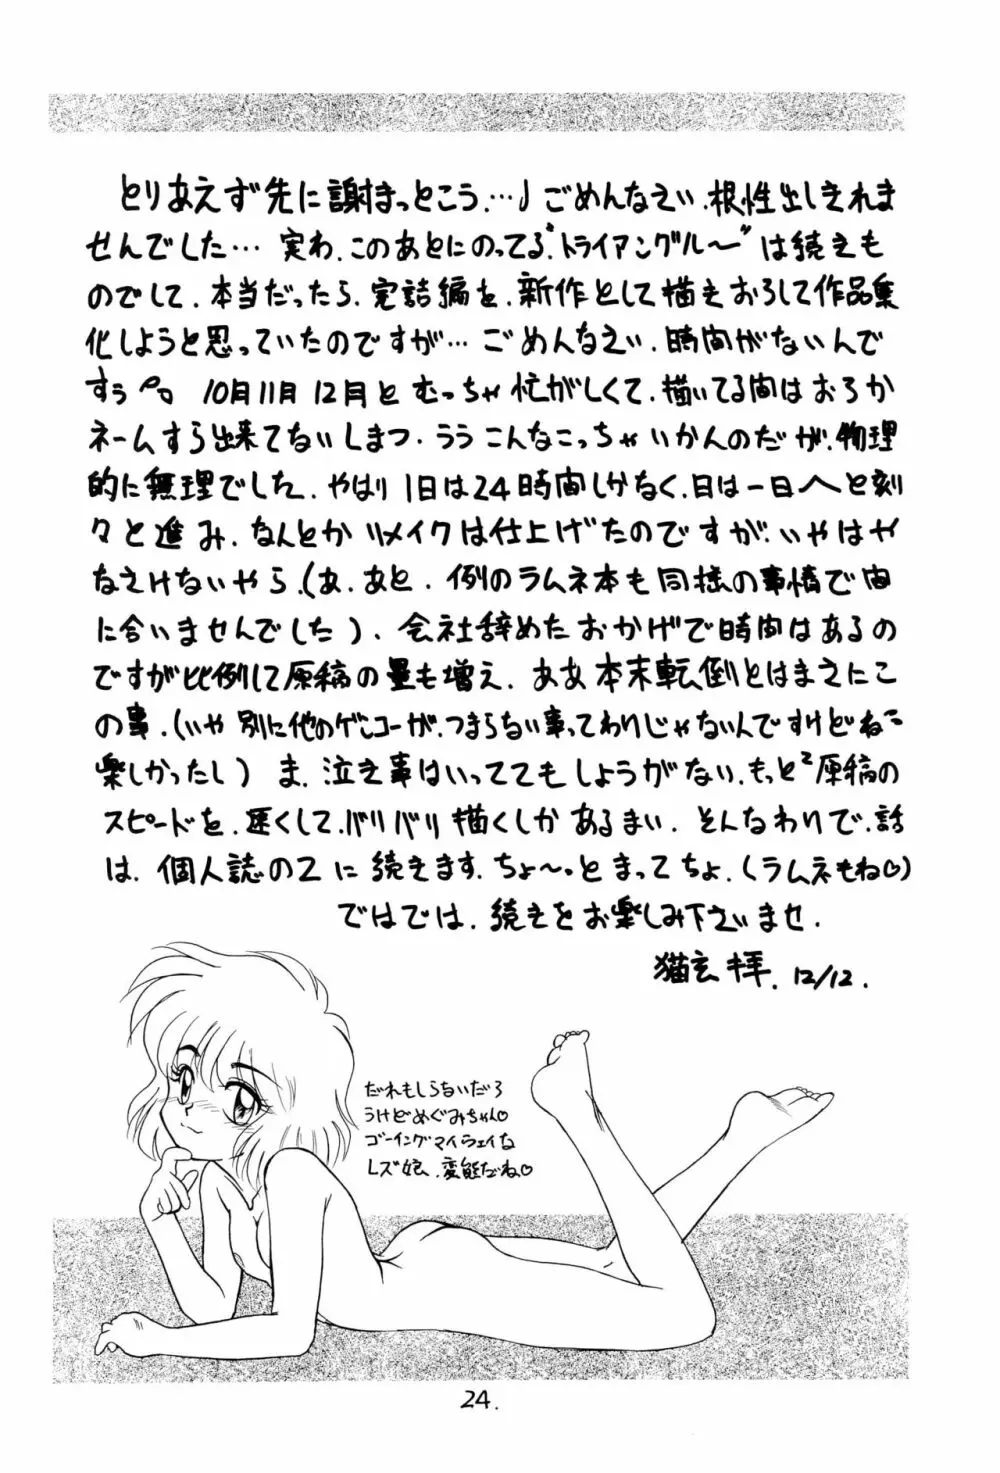 とりあえず先に謝まっとこう…♩ごめんなさい.根性出しきれま
せんでした… 実わ.このあとにのってる"トライアングル〜"は続きも
のでして.本当だったら.完結編を.新作として描きおろして作品集
化しようと思っていたのですが… ごめんなさい.時間がないんで
すぅ 10月11月12月と むっちゃ忙がしくて.描いてる間はおろか
ネームすら出来てないしまつ.うう こんなこっちゃいかんのだが.物理
的に無理でした.やはり1日は24時間しかなく.日は一日へと刻
々と進み.なんとかリメイクは仕上げたのですが.いやはや
なさけないやら.(あ.あと.例のラムネ本も同様の事情で間
に合いませんでした).会社辞めたおかげで時間はあるの
ですが比例して原稿の量も増え.ああ本末転倒とはまさにこ
の事.(いや別に他のゲンコーが.つまらない事ってわりじゃないんですけどねｰ
楽しかったし)ま.泣き事はいっててもしょうがない.もっと²原稿の
スピードを.速くして.バリバリ描くしかあるまい.そんなわりで.話
は.個人誌の2に続きます.ちょ〜っとまってちょ.(ラムネもね♡)
ではでは.続きをお楽しみ下さいませ.
猫玄拝.12/12.
だれもしらないだろ
うけどめぐみちゃん♡
ゴーイングマイウェイな
レズ娘.変態だね♡
24.